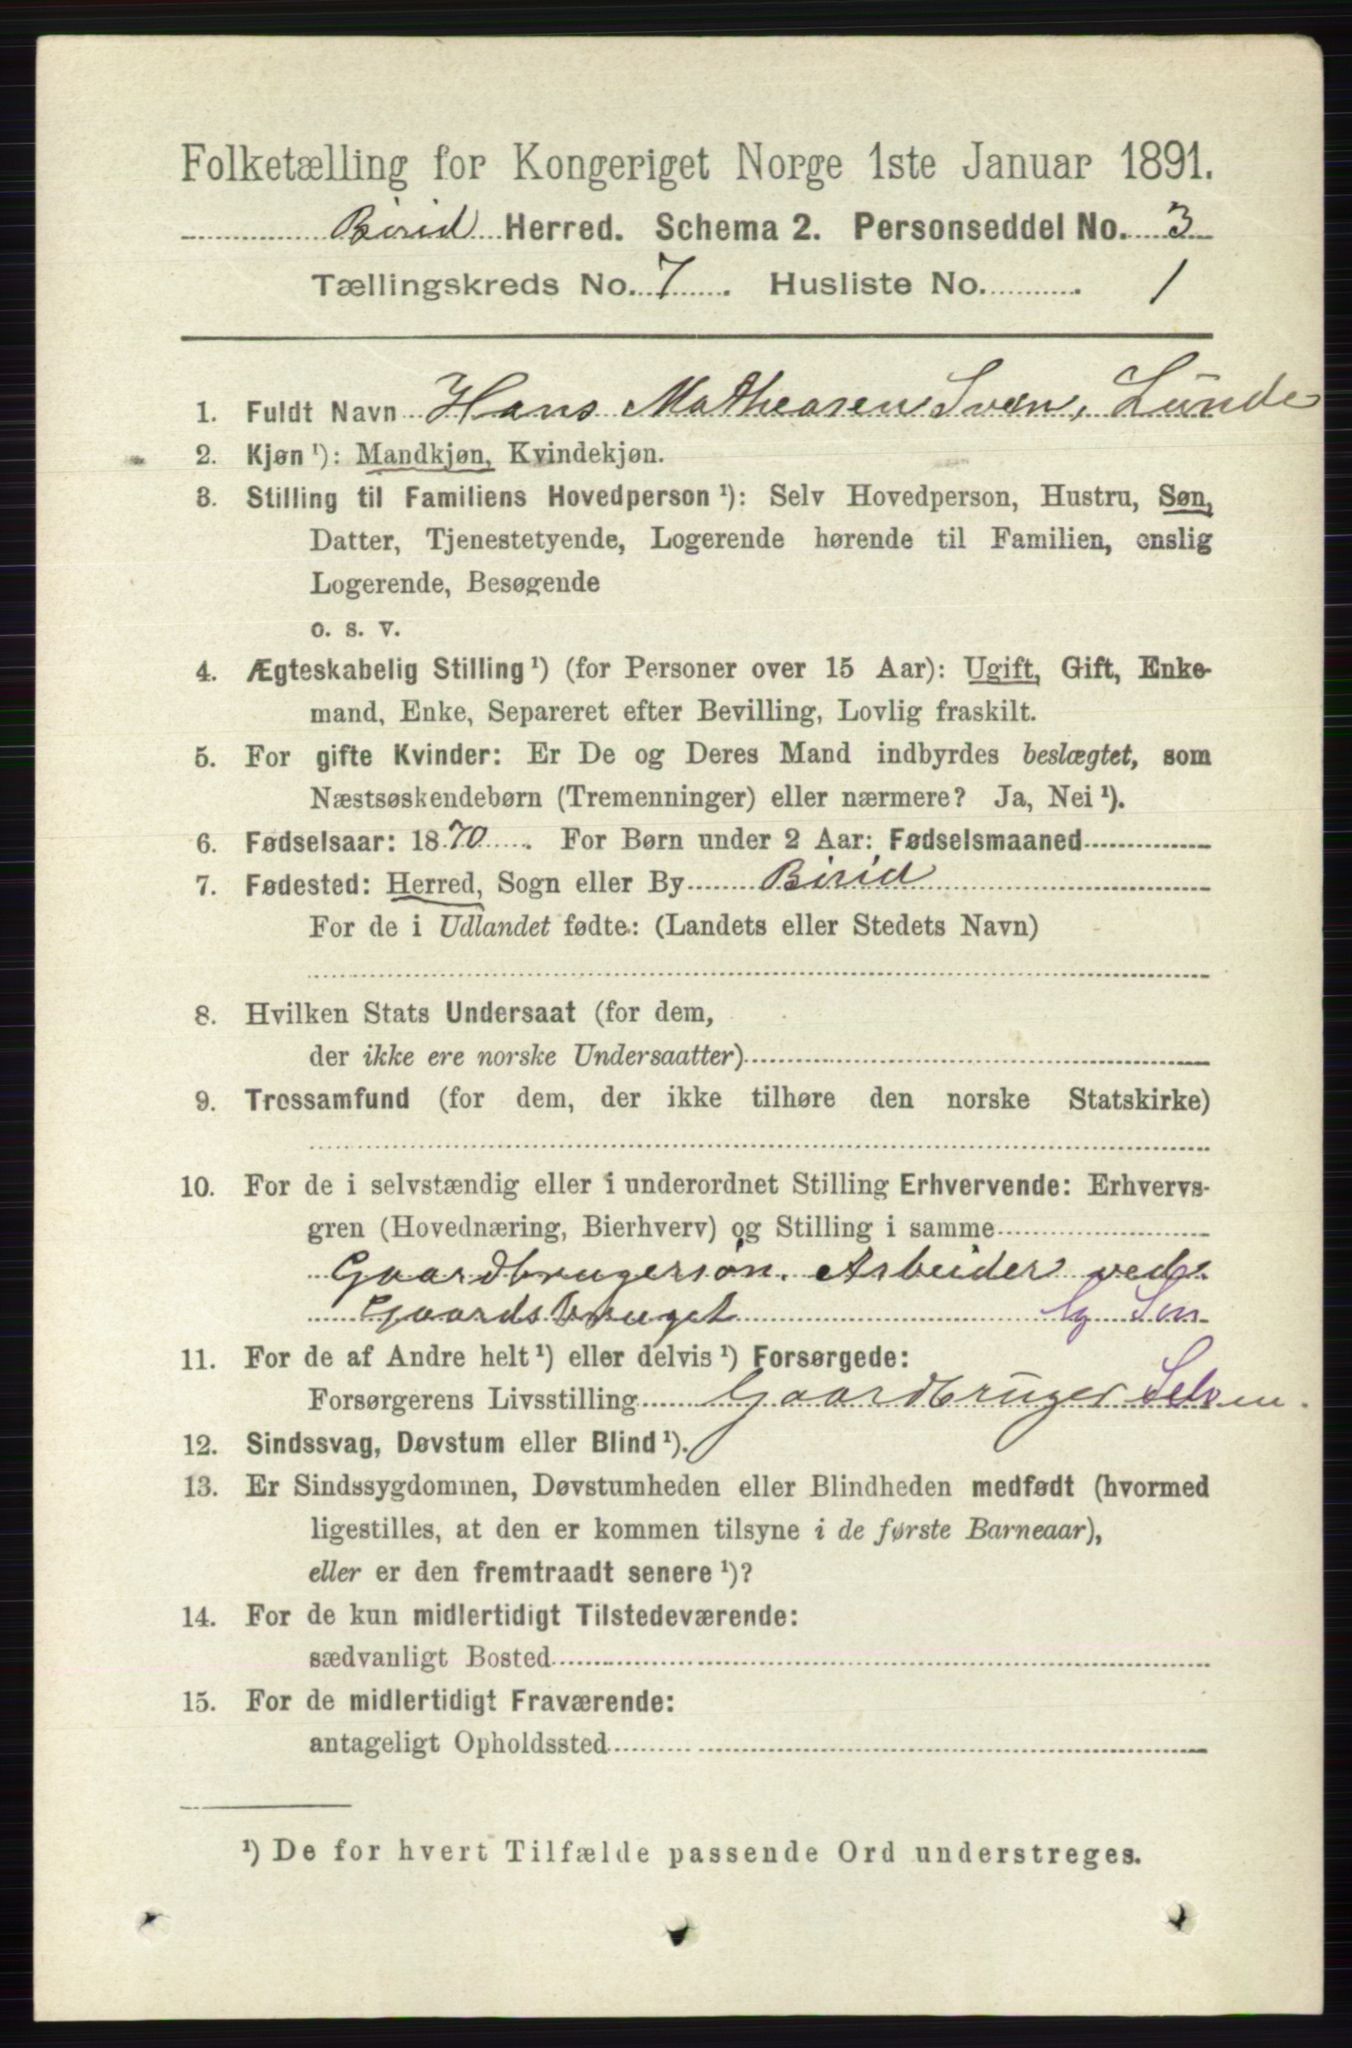 Folketælling for Kongeriget Norge 1ste Januar 1891.
Birid Herred. Schema 2. Personseddel No. 3
Tællingskreds No. 7. Husliste No. 1
1. Fuldt Navn Hans Matheasen Sveen, Lunde
2. Kjøn ¹): Mandkjøn, Kvindekjøn.
3. Stilling til Familiens Hovedperson ¹): Selv Hovedperson, Hustru, Søn,
Datter, Tjenestetyende, Logerende hørende til Familien, enslig
Logerende, Besøgende
o. s. v.
4. Ægteskabelig Stilling ¹) (for Personer over 15 Aar): Ugift, Gift, Enke-
mand, Enke, Separeret efter Bevilling, Lovlig fraskilt.
5. For gifte Kvinder: Er De og Deres Mand indbyrdes beslægtet, som
Næstsøskendebørn (Tremenninger) eller nærmere? Ja, Nei ¹).
6. Fødselsaar: 1870. For Børn under 2 Aar: Fødselsmaaned
7. Fødested: Herred, Sogn eller By Birid
For de i Udlandet fødte: (Landets eller Stedets Navn)
8. Hvilken Stats Undersaat (for dem,
der ikke ere norske Undersaatter)
9. Trossamfund (for dem, der ikke tilhøre den norske Statskirke)
10. For de i selvstændig eller i underordnet Stilling Erhvervende: Erhvervs-
gren (Hovednæring, Bierhverv) og Stilling i samme
Gaardbrugersøn. Arbeider ved
Gaardsbruget
11. For de af Andre helt ¹) eller delvis ¹) Forsørgede:
Forsørgerens Livsstilling Gaardbruger
12. Sindssvag, Døvstum eller Blind ¹).
13. Er Sindssygdommen, Døvstumheden eller Blindheden medfødt (hvormed
ligestilles, at den er kommen tilsyne i de første Barneaar),
eller er den fremtraadt senere ¹)?
14. For de kun midlertidigt Tilstedeværende:
sædvanligt Bosted
15. For de midlertidigt Fraværende:
antageligt Opholdssted
¹) De for hvert Tilfælde passende Ord understreges.